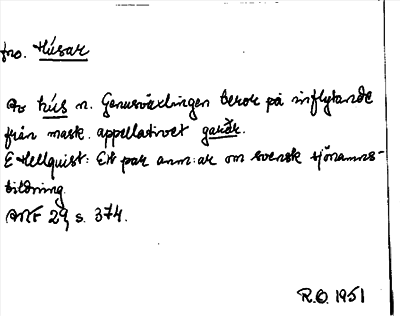 fno. Húsar
Av hús n. Genusväxlingen beror på inflytande
från mask. appellativet garðr.
E Hellquist: Ett par anm:ar om svensk sjönamns-
bildning.
ANF 29, s. 374.
R.O. 1951